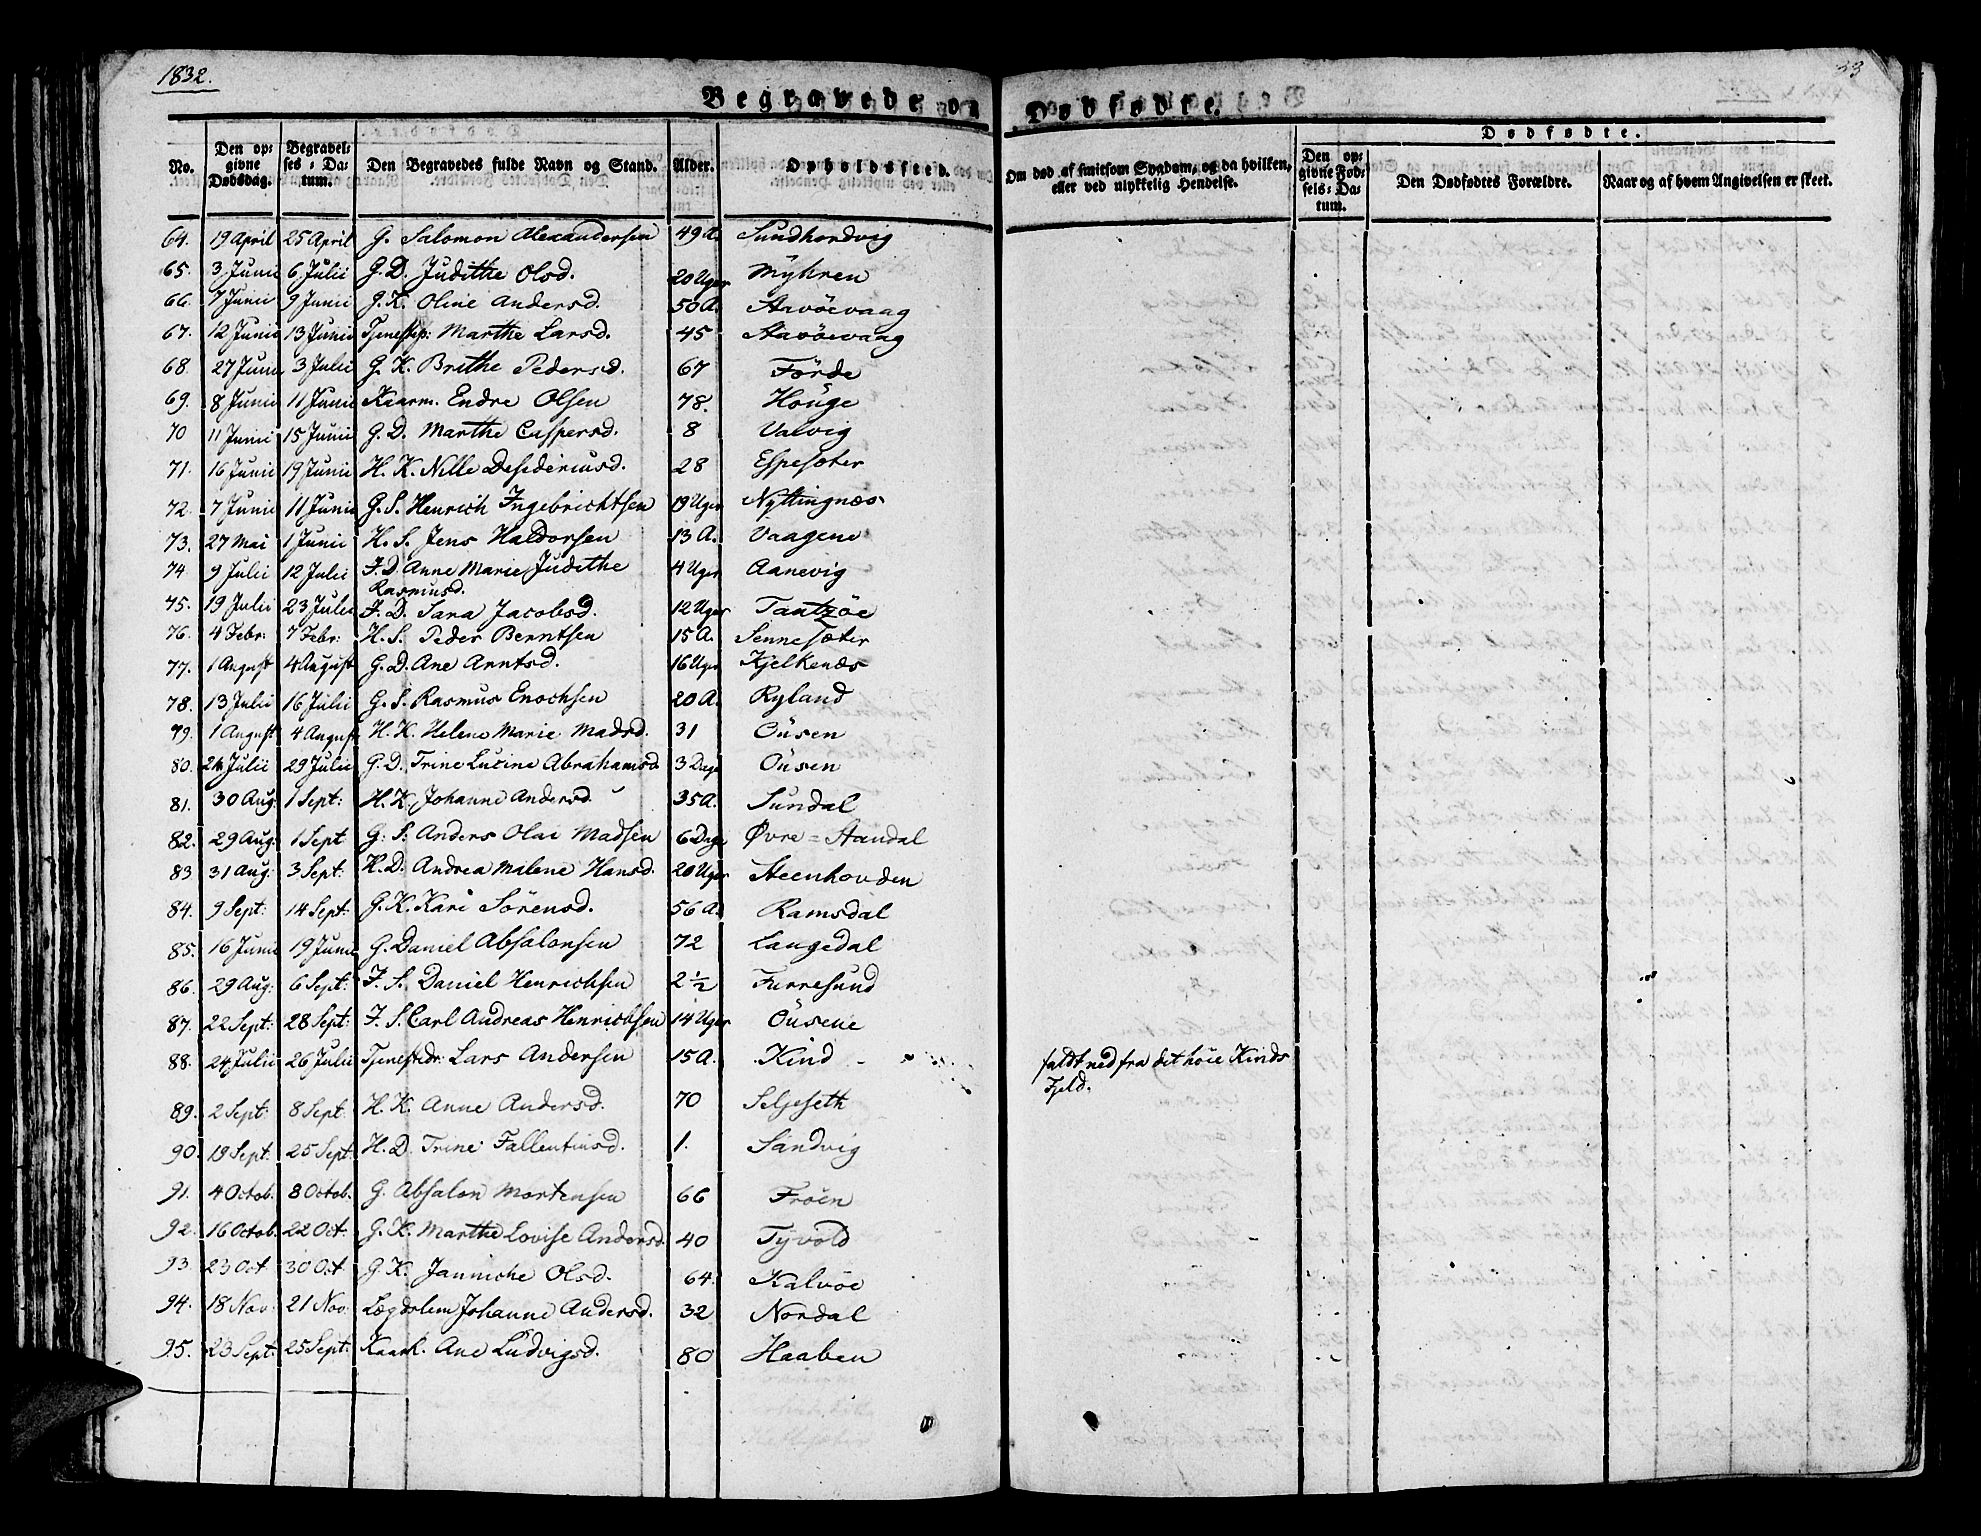 1832.
33
Begravede og Dødfødte.
No. | Den opgivne Dødsdag. | Begravelses-Datum. | Den Begravedes fulde Navn og Stand. | Alder. | Opholdssted. | Om død af smitsom Sygdom, og da hvilken, eller ved ulykkelig Hendelse. | Dødfødte. | Den opgivne Fødsels-Datum. | Den Dødfødtes Forældre. | Naar og af hvem Angivelsen er skeet.
64. 19 April 25 April G. Salomon Alexandersen 49 A. Sundhordvig
65. 3 Junii 6 Julii G. D. Judithe Olsd. 20 Uger Myhren
66. 7 Junii 9 Junii G. K. Oline Andersd. 50 A. Stavöevaag
67. 12 Junii 13 Junii Tjenestep: Marthe Larsd. 45 Stavöevaag
68. 27 Junii 3 Julii G. K. Brithe Pedersd. 67 Förde
69. 8 Junii 11 Junii Kaarm. Endre Olsen 78. Houge
70 11 Junii 15 Junii G. D. Marthe Caspersd. 8 Valvig
71. 16 Junii 19 Junii H. K. Nille Desideriusd. 28 Espesæter
72. 7 Junii 11 Junii G. S. Henrich Ingebrichtsen 19 Uger Nyttingnæs
73. 27 Mai 1 Junii H. S. Jens Haldorsen 13 A. Vaagene
74 9 Julii 12 Julii I. D. Anne Marie Judithe Rasmusd. 4 Uger Aanevig
75. 19 Julii 23 Julii I. D. Sara Jacobsd. 12 Uger Tantzöe
76. 4 Febr: 7 Febr: H. S. Peder Berntsen 15 A. Sennesæter
77. 1 August 4 August G. D. Ane Arntsd. 16 Uger Kjelkenæs
78. 13 Julii 16 Julii G. S. Rasmus Enochsen 20 A. Ryland
79. 1 August 4 August H. K. Helene Marie Madsd. 31 Ousen
80. 24 Julii 29 Julii G. D. Trine Lucine Abrahamsd 3 Dage Ousen
81. 30 Aug: 1 Sept: H. K. Johanne Andersd. 35 A. Sundal
82. 29 Aug: 1 Sept G. S. Anders Olai Madsen 6 Dage Øvre-Standal
83 31 Aug: 3 Sept: H. D. Andrea Malene Hansd. 20 Uger Steenhovden
84. 9 Sept: 14 Sept: G. K. Kari Sörensd. 56 A. Ramsdal
85. 16 Junii 19 Junii G. Daniel Absalonsen 72 Langedal
86. 29 Aug: 6 Sept: I. S. Daniel Henrichsen 2 1/2 Furresund
87. 22 Sept: 28 Sept: I. S. Carl Andreas Henrichsen 14 Uger Ousene
88. 24 Julii 26 Julii Tjenestedr: Lars Andersen 15 A. Kind faldt ned fra det høie Kinds Fjeld.
89. 2 Sept: 8 Sept: H. K. Anne Andersd. 70 Seljeseth
90. 19 Sept: 25 Sept: H. D. Trine Fallentinsd. 1. Sandvig
91. 4 Octob. 8 Octob. G. Absalon Mortensen 66 Fröen
92. 16 Octob. 22 Oct: G. K. Marthe Lovise Andersd. 40 Tyvold
93. 23 Oct 30 Oct G. K. Janniche Olsd. 64. Kalvöe
94. 18 Nov: 21 Nov: Lægdslem Johanne Andersd. 32 Nordal
95. 23 Sept: 25 Sept: Kaark. Ane Ludvigsd. 80 Haaben